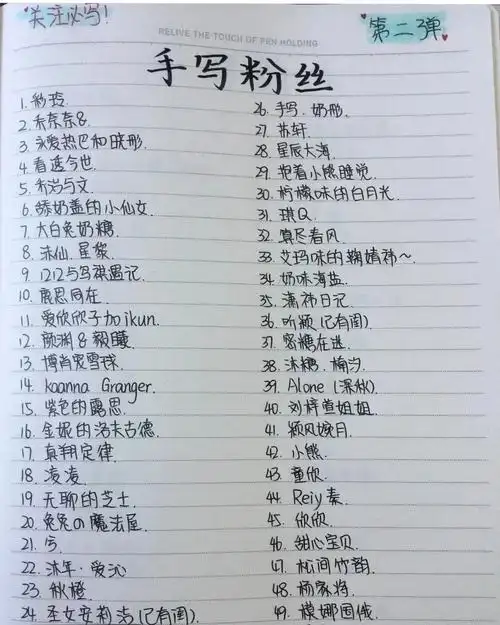 关注必写!
第二弹
RELIVE THE TOUCH OF PEN HOLDING
手写粉丝
1. 彩玲
2. 乔奈奈&
3. 永爱热巴和晓彤.
4. 看透今世
5. 乔治与文
6. 舔奶盖的小仙女.
7. 大白兔奶糖.
8. 沐仙.星黎.
9. 1212与写祺遇记.
10. 鹿思同在.
11. 爱欣欣子加ikun.
12. 颜渊&毅瞳
13. 博肖宠雪球.
14. koanna Granger.
15. 紫色的露思.
16. 金妮的洛夫古德.
17. 真翔定律.
18. 凌凌.
19. 无聊的芝士.
20. 兔兔の魔法屋.
21. 兮.
22. 沐年·爱沁
23. 秋橙.
24. 圣女安莉洁(已有闺).
26. 手写.奶彤.
27. 苏轩.
28. 星辰大海.
29. 抱着小熊睡觉.
30. 柠檬味的白月光.
31. 琪Q.
32. 莫尽春风.
33. 艾玛味的鞠婧祎~.
34. 奶味海盐.
35. 潇祎日记.
36. 听颖(已有闺).
37. 密糖在逃.
38. 沐糖.楠汐.
39. Alone (深秋).
40. 刘梓萱姐姐.
41. 颖风婉月.
42. 小熊.
43. 童欣.
44. Reiy秦.
45. 欣欣.
46. 甜心宝贝.
47. 松间竹韵.
48. 杨家将.
49. 模娜国俄.